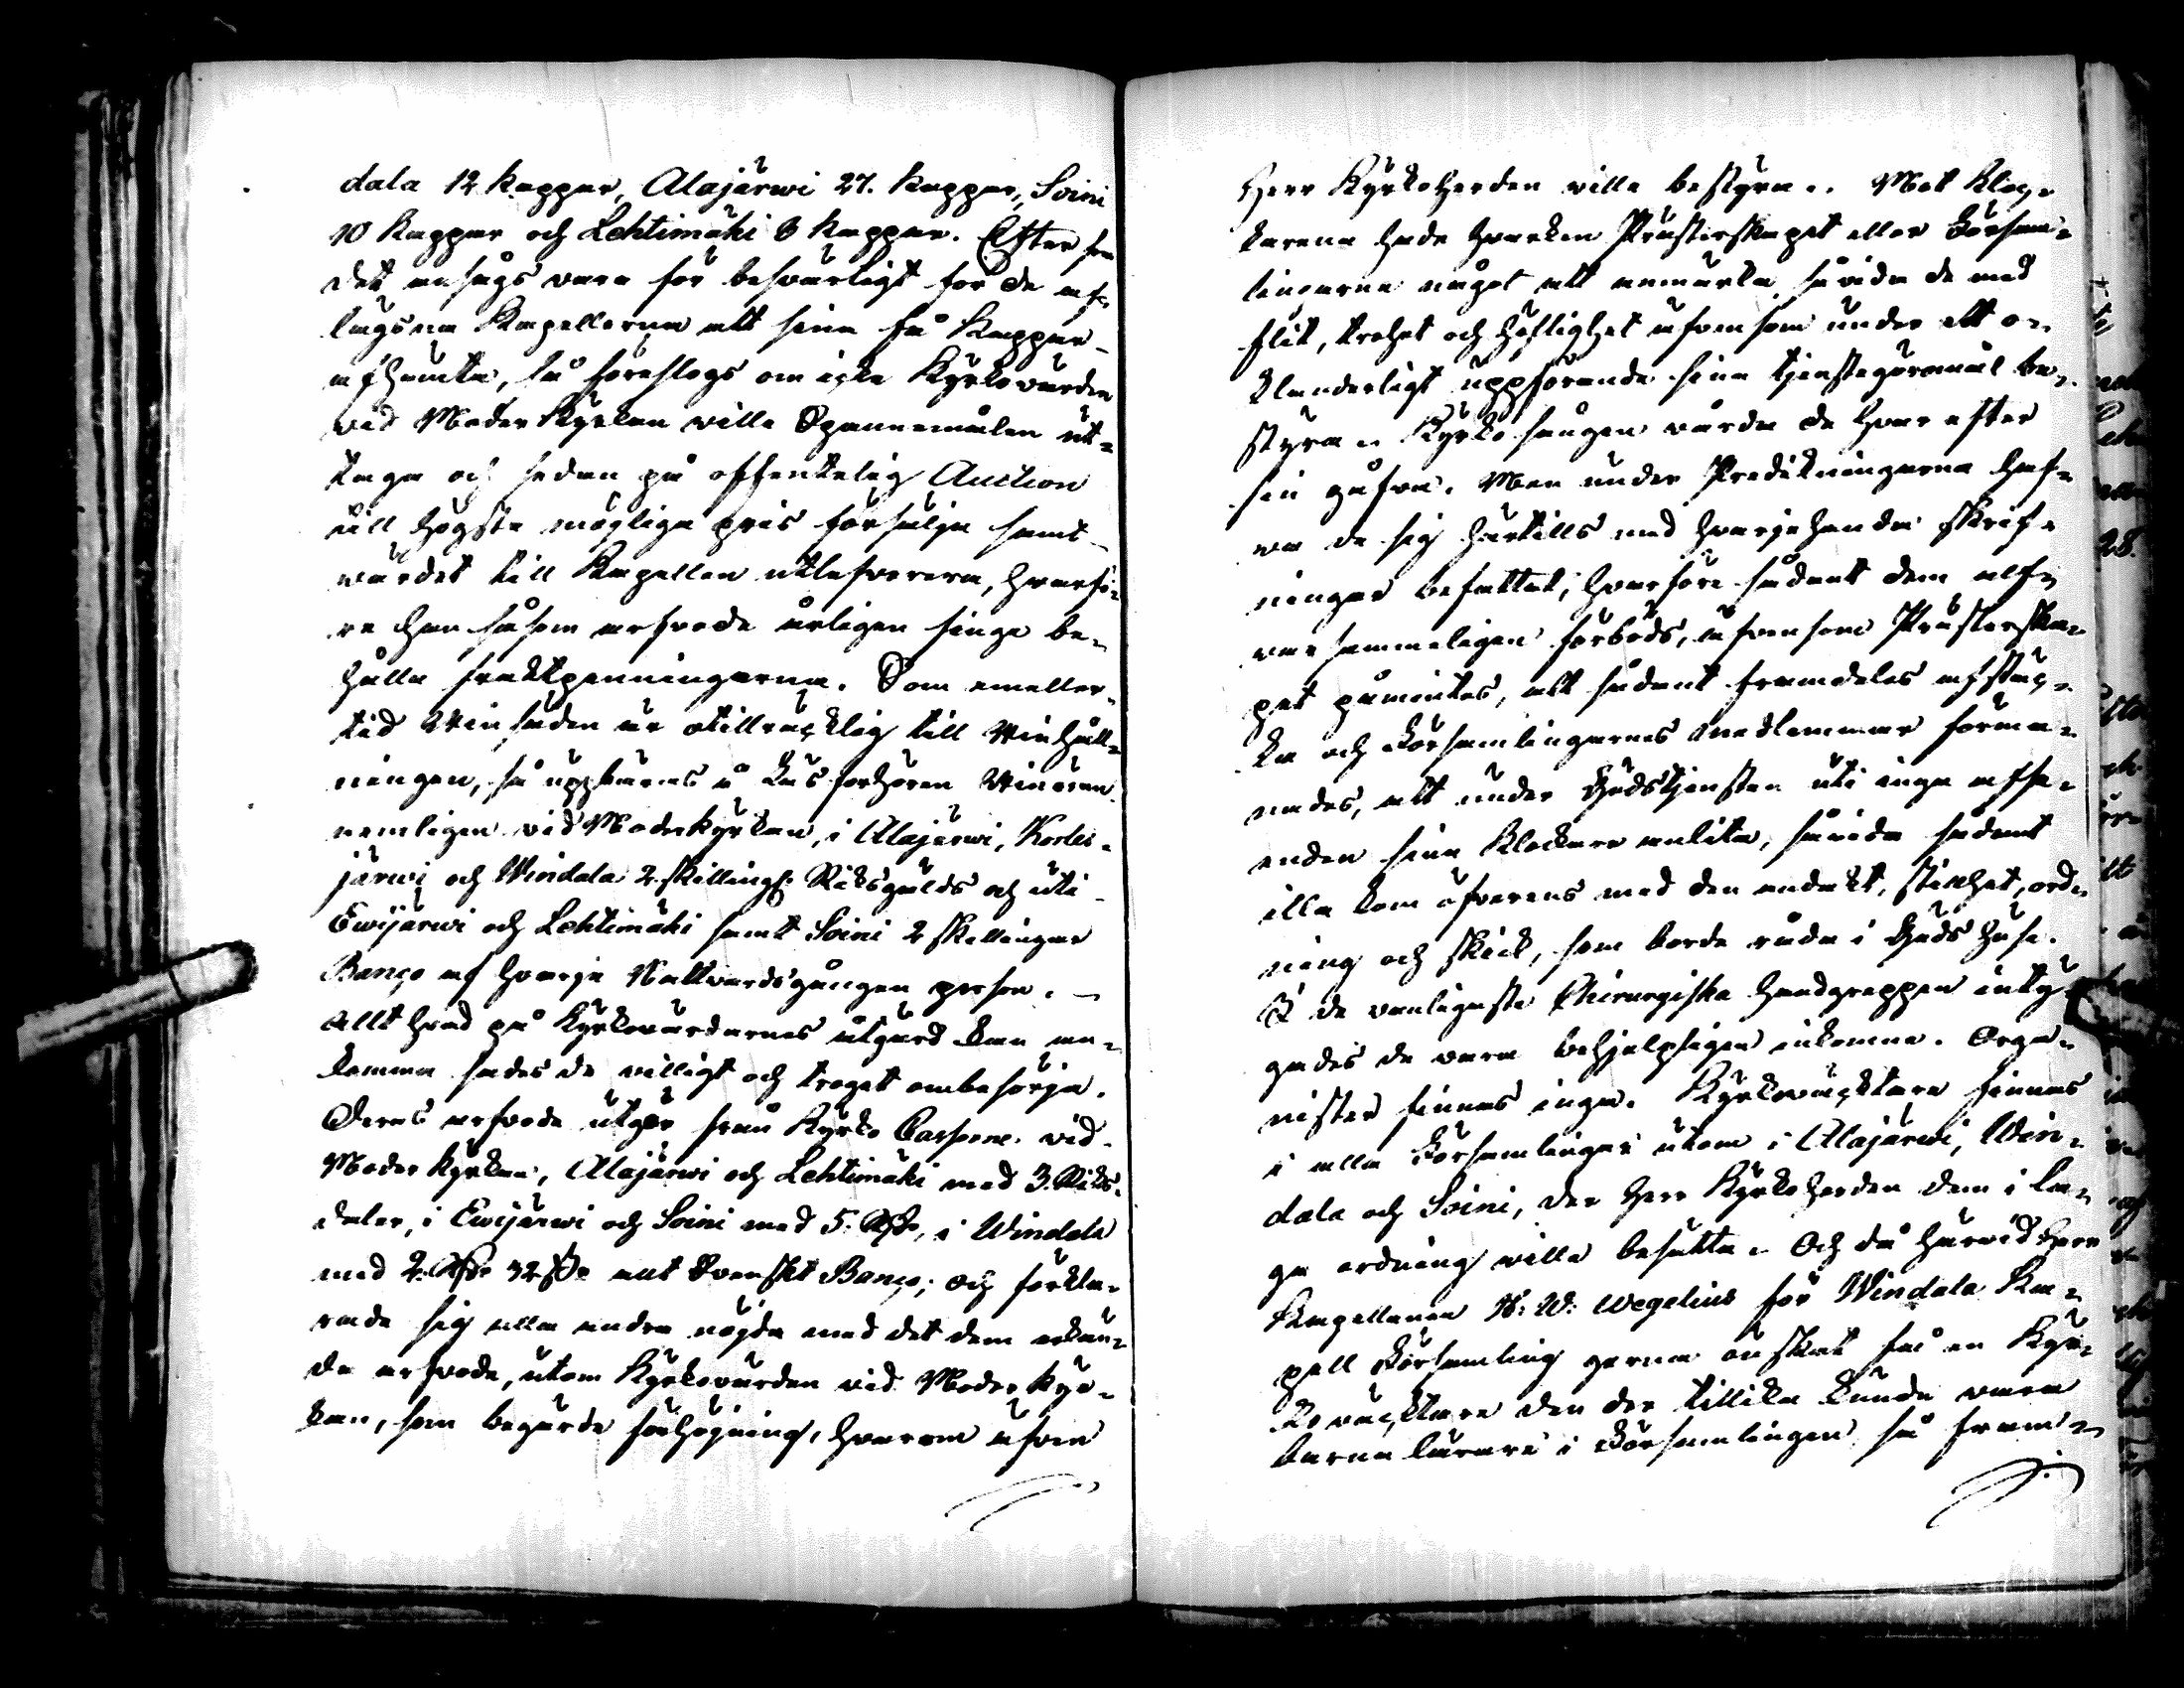 dala 12 kappar, Alajärwi 27. kappar, Soini
10 kappar och Lehtimäki 6 kappar. Efter som
det ansågs vara för besvärligt för de af-
lägsna Kapellerna att sina få kappar
afhämta, så föreslogs om icke Kyrkovärden
vid Moder Kyrkan ville Spannemålen ut-
taga och sedan på offentelig Auction
till högsta möjliga pris försälja samt
värdet till Kapellen utlefverera, hvarfö-
re han såsom arfvode årligen finge be-
hålla fraktpenningarna. Som emeller-
tid Vinsäden är otillräcklig till Vinhåll-
ningen, så uppbäres å Läsförhören Vinören
nemligen vid Moderkyrkan, i Alajärwi, Kortes-
järwi och Windala 2. skilling Riksgälds och uti
Ewijärwi och Lehtimäki samt Soini 2 skillingar
Banco af hvarje Nattvardsgången person. –
Allt hvad på Kyrkovärdarnes åtgärd kan an-
komma sades de villigt och troget ombesörja.
Deras arfvode utgör från Kyrko Cassorne vid
Moder kyrkan, Alajärwi och Lehtimäki med 3. Riks-
daler, i Ewijärwi och Soini med 5. Rd, i Windala
med 2. Rd 32 s allt Svenskt Banco; och förkla-
rade sig alla andra nöjda med det dem erkän-
da arfvode, utom Kyrkovärden vid Moder kyr-
kan, som begärde förhöjning, hvarom äfven
Herr Kyrkoherden ville bestyra. Mot Kloc-
karena hade hvarken Prästerskapet eller Försam-
lingarna något att anmärka, såvida de med
flit, trohet och höflighet äfvensom under ett o-
klanderligt uppförande sina tjenstegöromål be-
styra. Kyrko sången vårda de hvar efter
sin gåfva. Men under Predikningarna haf-
va de sig härtills med hvarjehanda skrif-
ningar befattat; hvarföre sådant dem alf-
varsammeligen förböds, äfvensom Prästerska-
pet påmintes, att sådant framdeles afstyc-
ka och Församlingarnes medlemmar förma-
nades, att under Gudstjensten uti inga affai-
enden sina Klockare anlita, såvida sådant
illa kom öfverens med den andakt, stillhet, ord-
ning och skick, som borde råda i Guds hus.
I de vanligaste Chirurgiska handgreppen inty-
gades de vara behjelpeligen inkomne. Orga-
nister finnas inga. Kyrkovacktare finnas
i alla Församlingar utom i Alajärwi, Win-
dala och Soini, der Herr Kyrkoherden dem i la-
ga ordning ville besätta. Och då härvid Herr
Kapellanen N: W: Wegelius för Windala Ka-
pell Församling gerna önskat få en Kyr-
kovacktare den der tillika kunde vara
barnalärare i Församlingen så fram-